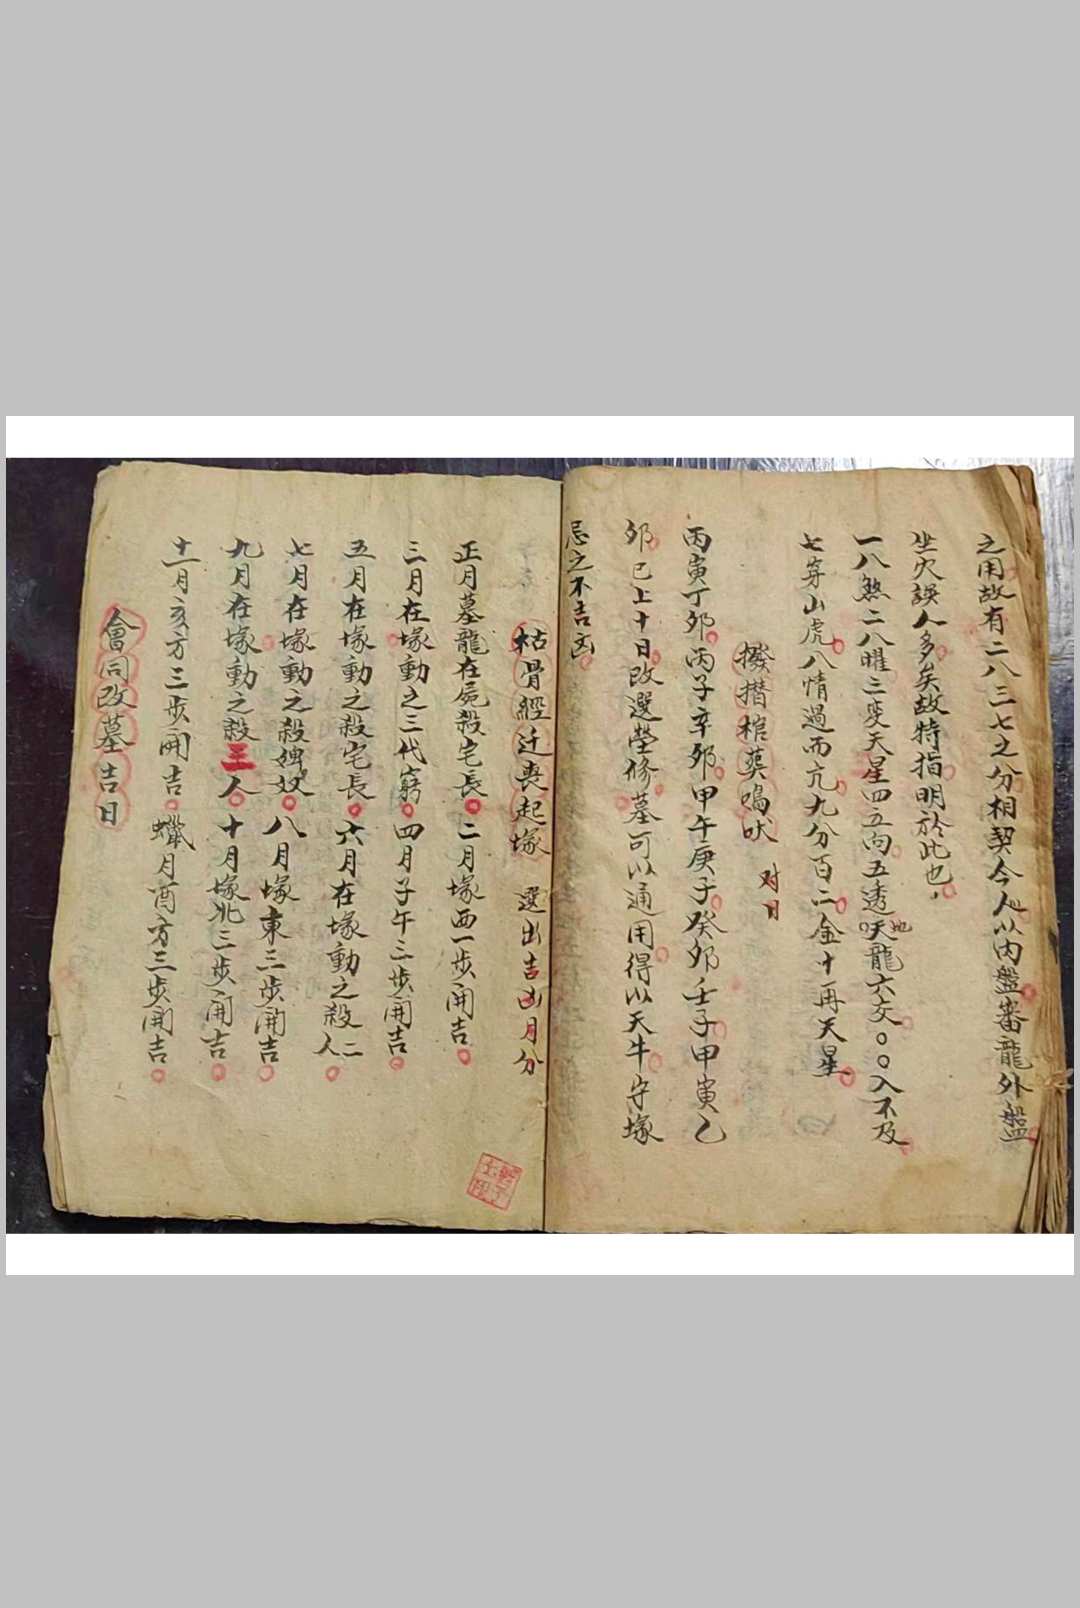 之用故有二八三七之分相契今人以內盤審龍外盤
坐穴誤人多矣故特指明於此也
一八煞二八曜三变天星四立向五透地天龍六交〇〇入不及
七穿山虎八情過而亢九分百二金十再天星
撥㨯棺葬鳴吠 对日
丙寅丁夘丙子辛夘甲午庚子癸夘壬子甲寅乙
夘已上十日改選塋修墓可以通用得以天牛守塚
忌之不吉凶
枯骨經迁喪起塚 選出吉凶月分
正月墓龍在屍殺宅長。二月塚西一步開吉。
三月在塚動之三代窮。四月子午三步開吉。
五月在塚動之殺宅長。六月在塚動之殺二人。
七月在塚動之殺婢奴。八月塚東三步開吉。
九月在塚動之殺三人。十月塚北三步開吉。
十一月亥方三步開吉。蠟月酉方三步開吉。
會同改墓吉日